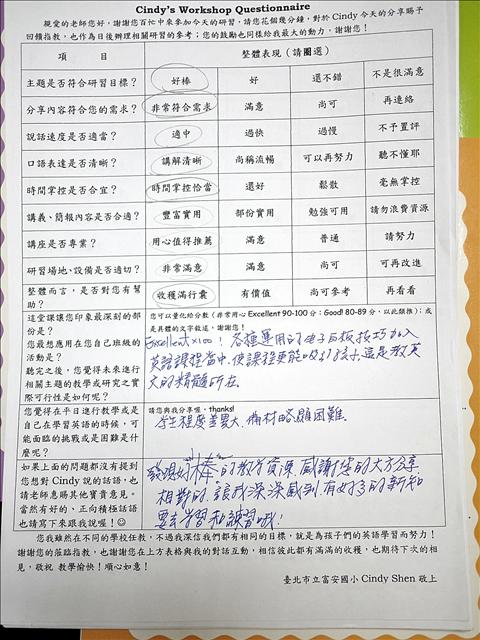 Cindy's Workshop Questionnaire
親愛的老師您好，謝謝您百忙中來參加今天的研習，請您花個幾分鐘，對於 Cindy 今天的分享賜予
回饋指教，也作為日後辦理相關研習的參考；您的鼓勵也同樣給我最大的動力，謝謝您！
項 目 整體表現（請圈選）
主題是否符合研習目標？ 好棒 好 還不錯 不是很滿意
分享內容符合您的需求？ 非常符合需求 滿意 尚可 再連絡
說話速度是否適當？ 適中 過快 過慢 不予置評
口語表達是否清晰？ 講解清晰 尚稱流暢 可以再努力 聽不懂耶
時間掌控是否合宜？ 時間掌控恰當 還好 鬆散 毫無掌控
講義、簡報內容是否合適？ 豐富實用 部份實用 勉強可用 請勿浪費資源
講座是否專業？ 用心值得推薦 滿意 普通 請努力
研習場地、設備是否適切？ 非常滿意 滿意 尚可 可再改進
整體而言，是否對您有幫
助？ 收穫滿行囊 有價值 尚可參考 再看看
這堂課讓您印象最深刻的部
份是？
您最想應用在您自己班級的
活動是？
聽完之後，您覺得未來進行
相關主題的教學或研究之實
際可行性是如何呢？
您可以量化給分數（非常用心 Excellent 90-100 分；Good! 80-89 分，以此類推）；或
是具體的文字敘述，謝謝您！
Excellent×100！各種運用的電子白板技巧加入
英語課程當中，使課程更能吸引孩子，這是教英
文的精髓所在。
您覺得在平日進行教學或是
自己在學習英語的時候，可
能面臨的挑戰或是困難是什
麼呢？
請您與我分享喔，thanks!
學生程度差異大，備材略顯困難。
如果上面的問題都沒有提到
您想對 Cindy 說的話語，也
請老師惠賜其他寶貴意見。
當然有好的、正向積極話語
也請寫下來跟我說喔！☺
發現好棒的教學資源，感謝您的大方分享。
相對的，讓我深深感到有好多的新知
要去學習和練習哦！
您我雖然在不同的學校任教，不過我深信我們都有相同的目標，就是為孩子們的英語學習而努力！
謝謝您的蒞臨指教，也謝謝您在上方表格與我的對話互動，相信彼此都有滿滿的收穫，也期待下次的相
見，敬祝 教學愉快！順心如意！
臺北市立富安國小 Cindy Shen 敬上